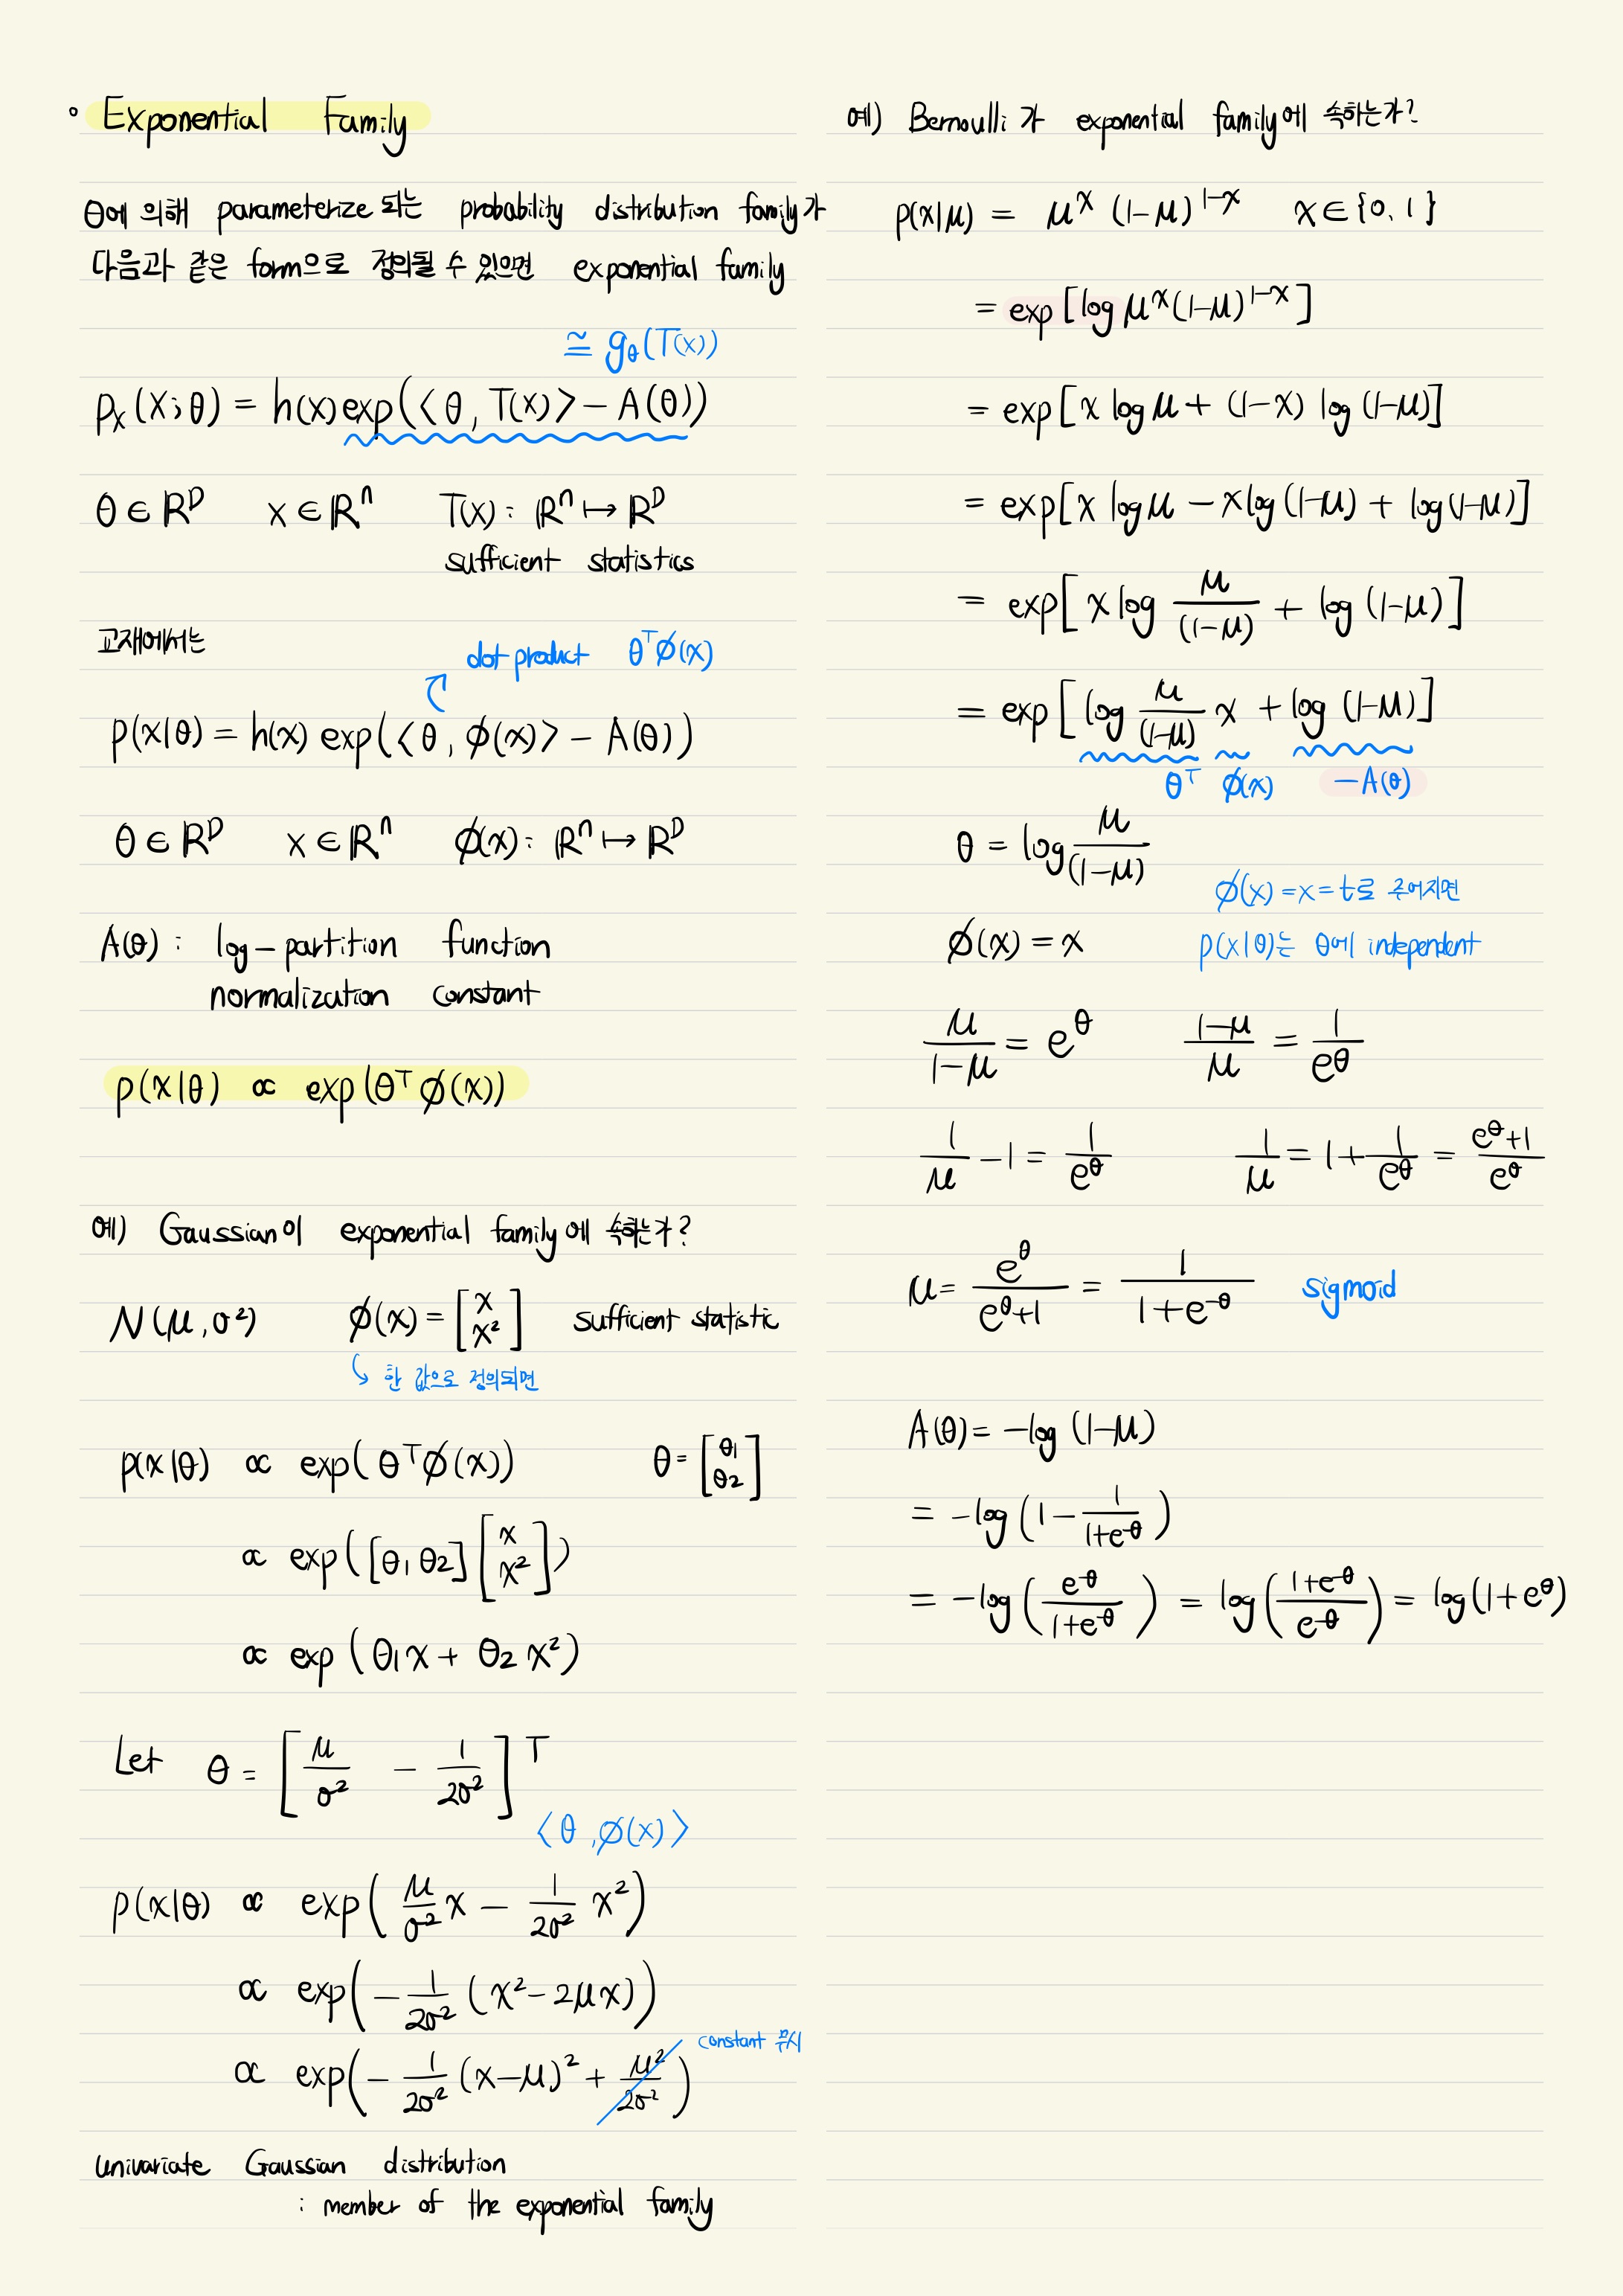 ◦ Exponential Family
θ에 의해 parameterize 되는 probability distribution family가
다음과 같은 form으로 정의될 수 있으면 exponential family
≅ g_θ(T(x))
p_x(x;θ) = h(x)exp(<θ, T(x)> - A(θ))
θ ∈ ℝ^D x ∈ ℝ^n T(x) : ℝ^n ↦ ℝ^D
sufficient statistics
교재에서는
dot product θ^T ϕ(x)
p(x|θ) = h(x) exp(<θ, ϕ(x)> - A(θ))
θ ∈ ℝ^D x ∈ ℝ^n ϕ(x) : ℝ^n ↦ ℝ^D
A(θ) : log-partition function
normalization constant
p(x|θ) ∝ exp(θ^T ϕ(x))
예) Gaussian이 exponential family에 속하는가?
N(μ, σ²) ϕ(x) = [x x²] sufficient statistic
↳ 한 값으로 정의되면
p(x|θ) ∝ exp(θ^T ϕ(x)) θ = [θ1 θ2]
∝ exp([θ1 θ2][x x²])
∝ exp(θ1x + θ2x²)
Let θ = [μ/σ² - 1/2σ²]^T
<θ, ϕ(x)>
p(x|θ) ∝ exp(μ/σ² x - 1/2σ² x²)
∝ exp(- 1/2σ² (x² - 2μx))
constant 무시
∝ exp(- 1/2σ² (x-μ)² + μ²/2σ²)
univariate Gaussian distribution
: member of the exponential family
예) Bernoulli 가 exponential family에 속하는가?
p(x|μ) = μ^x (1-μ)^{1-x} x ∈ {0, 1}
= exp[log μ^x (1-μ)^{1-x}]
= exp[x log μ + (1-x) log (1-μ)]
= exp[x log μ - x log (1-μ) + log (1-μ)]
= exp[x log μ/(1-μ) + log (1-μ)]
= exp[log μ/(1-μ) x + log (1-μ)]
θ^T ϕ(x) -A(θ)
θ = log μ/(1-μ)
ϕ(x) = x = t로 주어지면
ϕ(x) = x p(x|θ)는 θ에 independent
μ/1-μ = e^θ 1-μ/μ = 1/e^θ
1/μ - 1 = 1/e^θ 1/μ = 1 + 1/e^θ = e^θ+1/e^θ
μ = e^θ/e^θ+1 = 1/1+e^-θ sigmoid
A(θ) = -log (1-μ)
= -log (1 - 1/1+e^-θ)
= -log (e^-θ/1+e^-θ) = log (1+e^-θ/e^-θ) = log (1+e^θ)